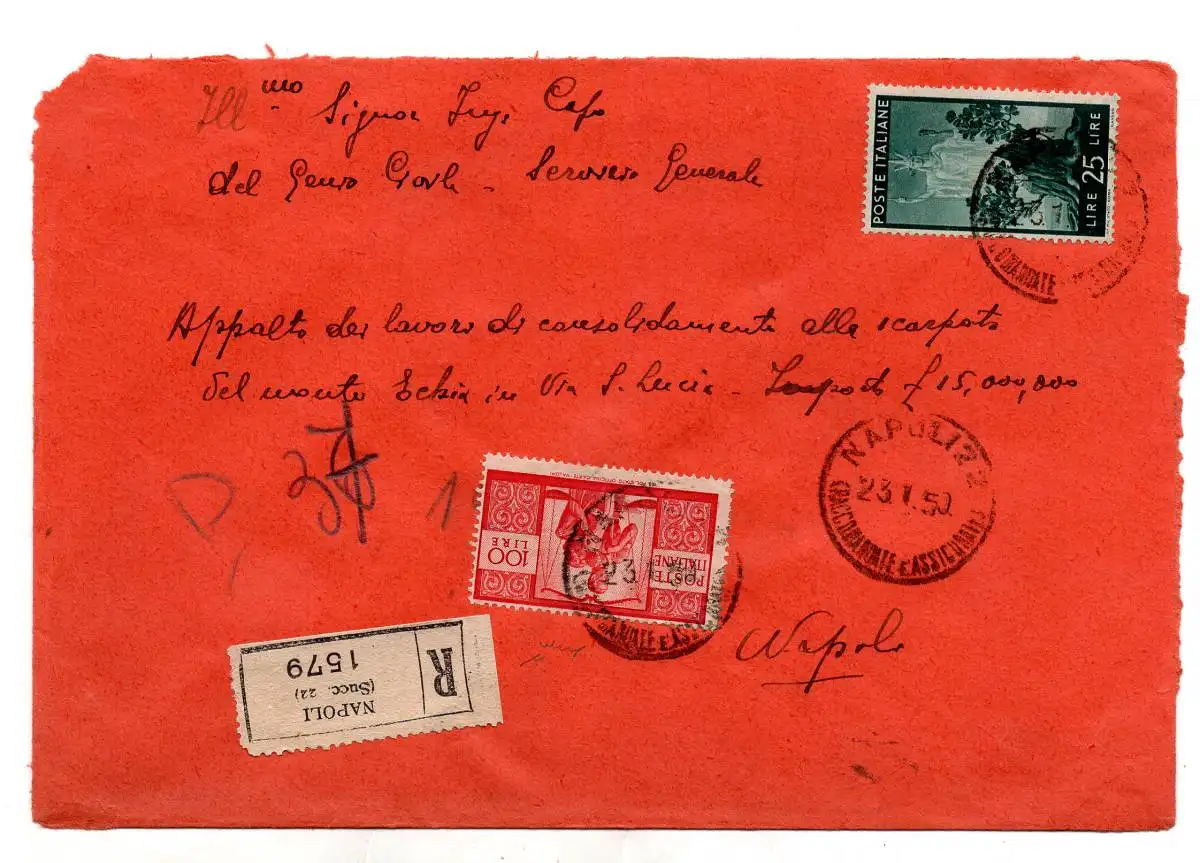 Ill mo Signor Ing. Capo
del Genio Civile - Servizio Generale
POSTE ITALIANE
LIRE 25 LIRE
Appalto dei lavori di consolidamento alla scarpata
del monte Echia in Via S. Lucia - Importo £ 15,000,000
D, 37 1
POSTE
ITALIANE
100
LIRE
23.1.50
NAPOLI 22
23.1.50.
RACCOMANDATE E ASSICURATE
Napoli
R
NAPOLI
(Succ. 22)
1579